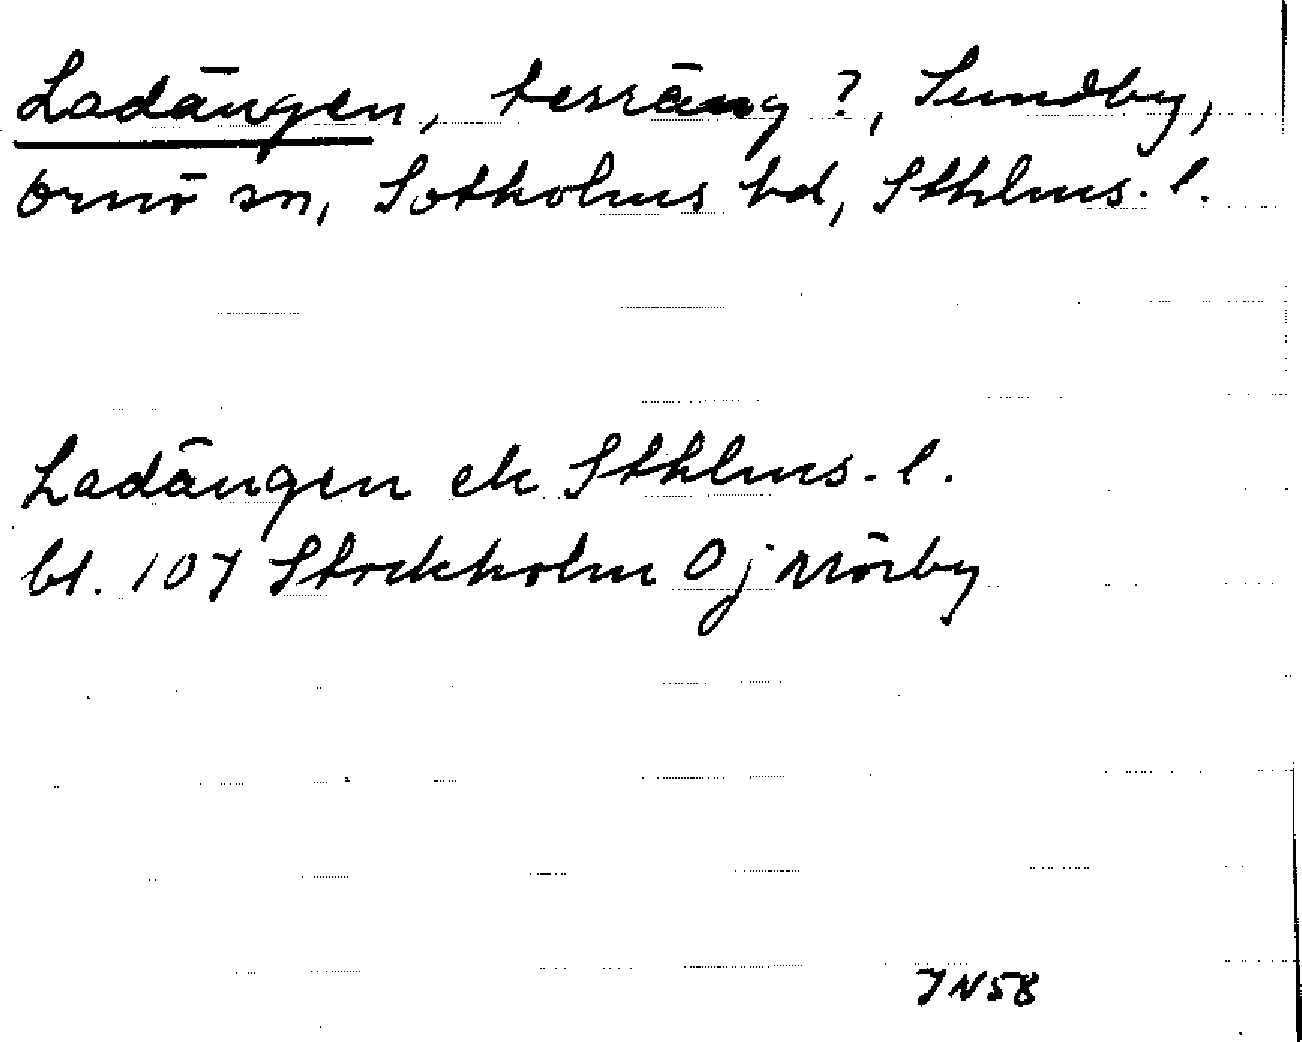 Ladängen, terräng?, Sundby,
Ornö sn, Sotholms hd, Sthlms. l.
Ladängen ek Sthlms. l.
bl. 107 Stockholm Oj Mörby
JN58